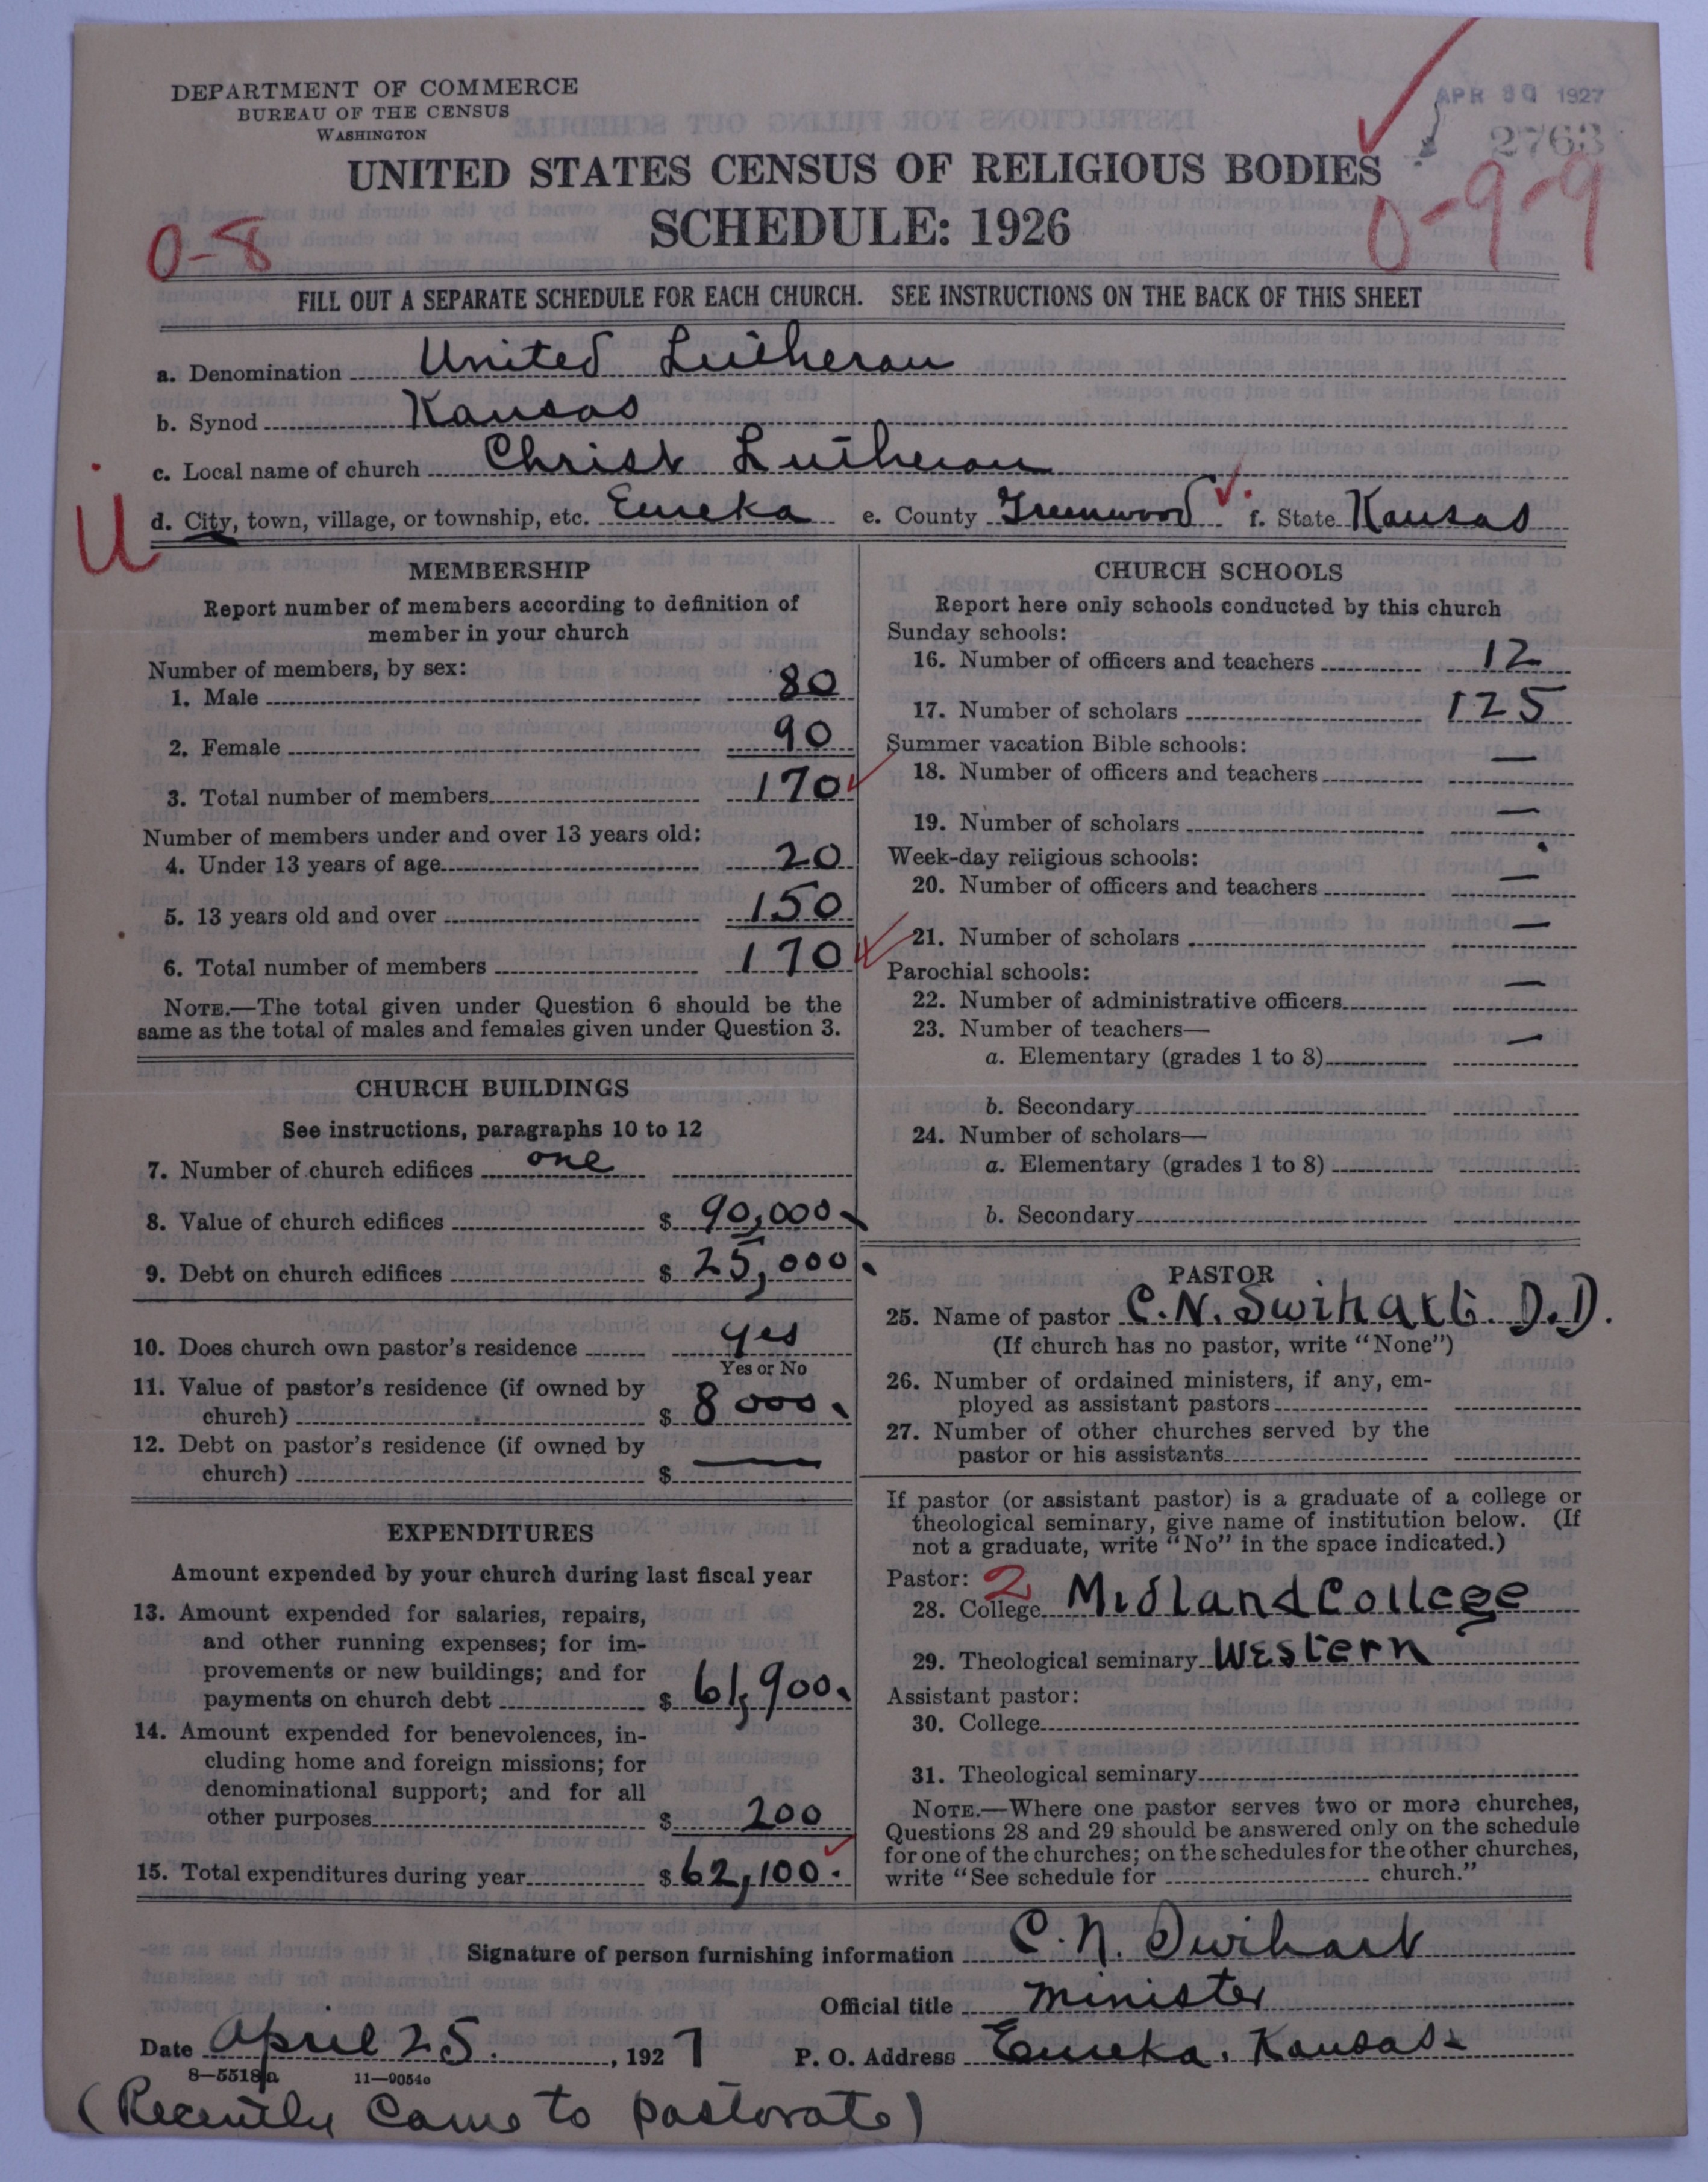 DEPARTMENT OF COMMERCE
BUREAU OF THE CENSUS
WASHINGTON
APR 30 1927
2763
UNITED STATES CENSUS OF RELIGIOUS BODIES
SCHEDULE: 1926
0-8
0-9-9
FILL OUT A SEPARATE SCHEDULE FOR EACH CHURCH. SEE INSTRUCTIONS ON THE BACK OF THIS SHEET
a. Denomination United Lutheran
b. Synod Kansas
c. Local name of church Christ Lutheran
U
d. City, town, village, or township, etc. Eureka e. County Greenwood f. State Kansas
MEMBERSHIP
Report number of members according to definition of
member in your church
Number of members, by sex:
1. Male 80
2. Female 90
3. Total number of members 170
Number of members under and over 13 years old:
4. Under 13 years of age 20
5. 13 years old and over 150
6. Total number of members 170
NOTE.—The total given under Question 6 should be the
same as the total of males and females given under Question 3.
CHURCH BUILDINGS
See instructions, paragraphs 10 to 12
7. Number of church edifices one
8. Value of church edifices $ 90,000
9. Debt on church edifices $ 25,000.
10. Does church own pastor's residence yes
Yes or No
11. Value of pastor's residence (if owned by
church) $ 8000.
12. Debt on pastor's residence (if owned by
church) $ —
EXPENDITURES
Amount expended by your church during last fiscal year
13. Amount expended for salaries, repairs,
and other running expenses; for im-
provements or new buildings; and for
payments on church debt $ 61,900.
14. Amount expended for benevolences, in-
cluding home and foreign missions; for
denominational support; and for all
other purposes $ 200
15. Total expenditures during year $ 62,100.
CHURCH SCHOOLS
Report here only schools conducted by this church
Sunday schools:
16. Number of officers and teachers 12
17. Number of scholars 125
Summer vacation Bible schools:
18. Number of officers and teachers —
19. Number of scholars —
Week-day religious schools:
20. Number of officers and teachers —
21. Number of scholars —
Parochial schools:
22. Number of administrative officers —
23. Number of teachers—
a. Elementary (grades 1 to 8) —
b. Secondary
24. Number of scholars—
a. Elementary (grades 1 to 8)
b. Secondary
PASTOR
25. Name of pastor C.N. Swihart. D.D.
(If church has no pastor, write "None")
26. Number of ordained ministers, if any, em-
ployed as assistant pastors
27. Number of other churches served by the
pastor or his assistants
If pastor (or assistant pastor) is a graduate of a college or
theological seminary, give name of institution below. (If
not a graduate, write "No" in the space indicated.)
Pastor: 2
28. College Midland College
29. Theological seminary Western
Assistant pastor:
30. College
31. Theological seminary
NOTE.—Where one pastor serves two or more churches,
Questions 28 and 29 should be answered only on the schedule
for one of the churches; on the schedules for the other churches,
write "See schedule for church."
Signature of person furnishing information C. N. Swihart
Official title Minister
Date April 25. , 1927 P. O. Address Eureka, Kansas.
8—5518a 11—9054c
(Recently came to pastorate)